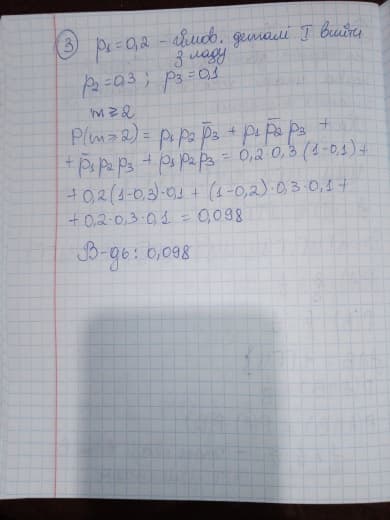 3 p₁ = 0,2 - ймов. деталі I вийти
з ладу
p₂ = 0,3 ; p₃ = 0,1
m ≥ 2
P(m ≥ 2) = p₁ p₂ p̄₃ + p₁ p̄₂ p₃ +
+ p̄₁ p₂ p₃ + p₁ p₂ p₃ = 0,2 · 0,3 (1-0,1) +
+ 0,2 (1-0,3) · 0,1 + (1-0,2) · 0,3 · 0,1 +
+ 0,2 · 0,3 · 0,1 = 0,098
В-дь: 0,098